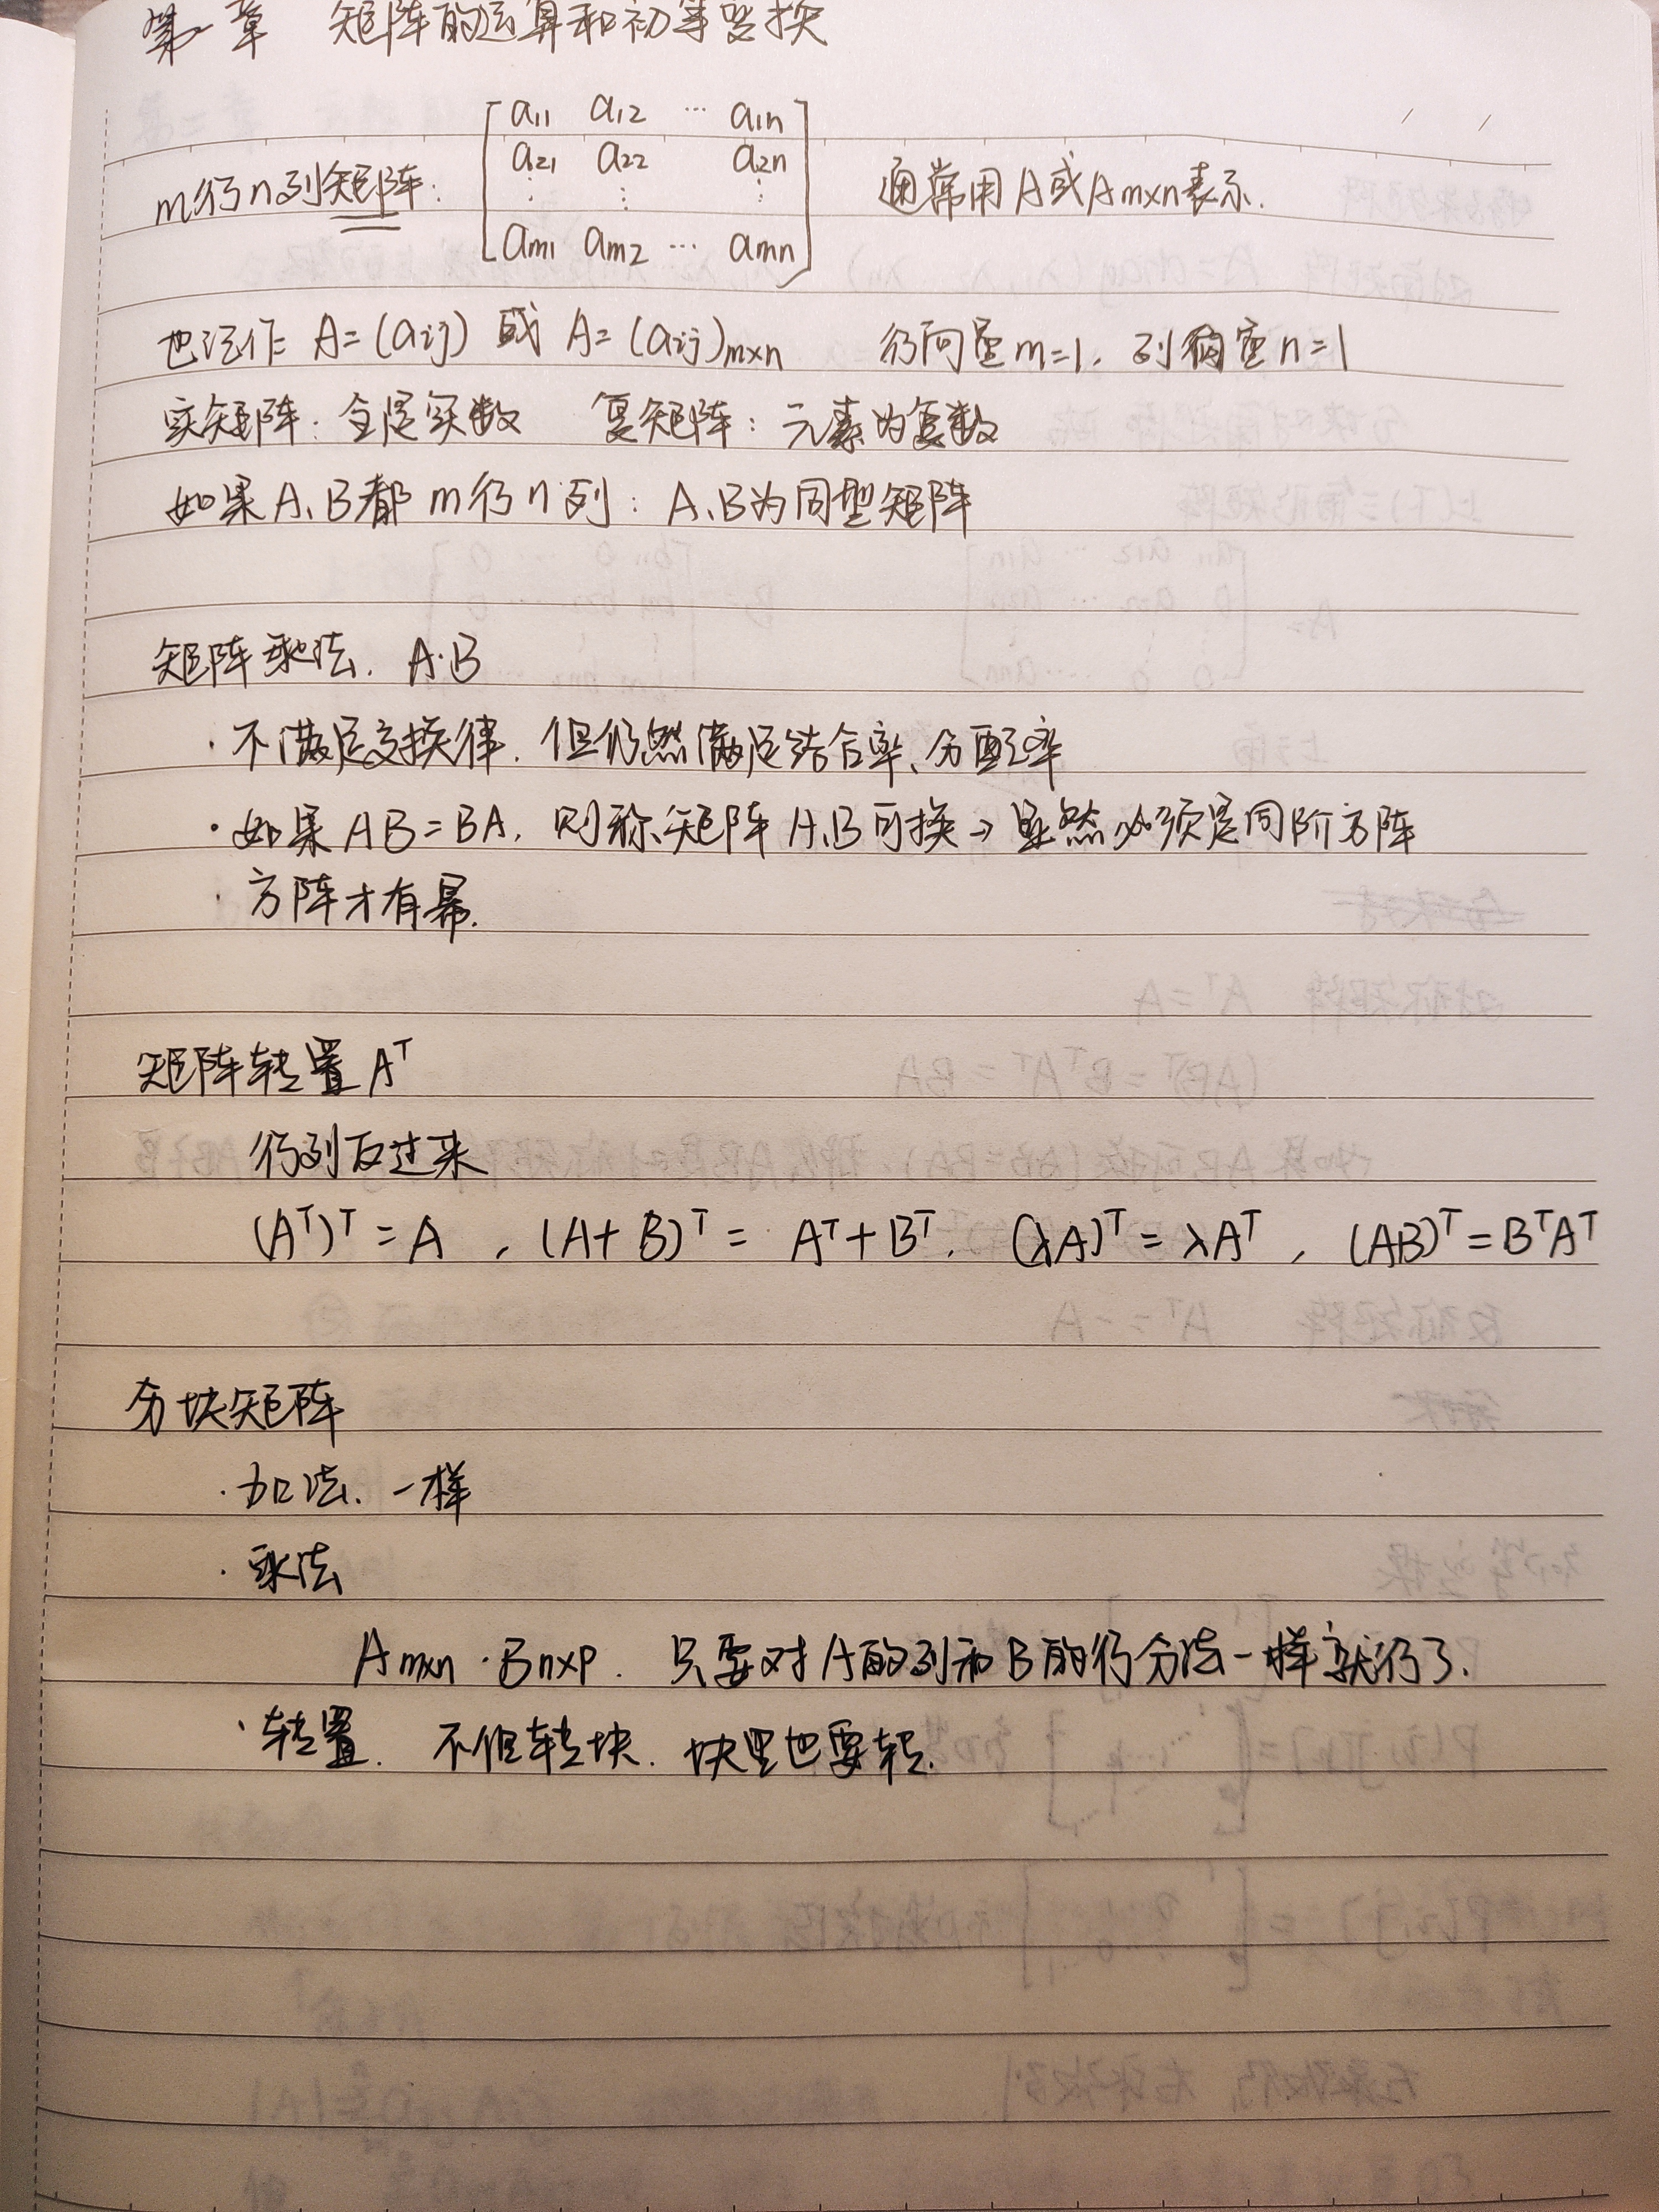 第一章 矩阵的运算和初等变换
m行n列矩阵:
a11 a12 ⋯ a1n
a21 a22 a2n
⋮ ⋮ ⋮
am1 am2 ⋯ amn
通常用A或Am×n表示.
也记作 A=(aij) 或 A=(aij)m×n 行向量m=1, 列向量n=1
实矩阵: 全是实数 复矩阵: 元素为复数
如果A、B都m行n列: A、B为同型矩阵
矩阵乘法. A·B
·不满足交换律. 但仍然满足结合率、分配率
·如果AB=BA, 则称矩阵A、B可换→显然必须是同阶方阵
·方阵才有幂.
矩阵转置Aᵀ
行列反过来
(Aᵀ)ᵀ=A , (A+B)ᵀ= Aᵀ+Bᵀ, (λA)ᵀ=λAᵀ , (AB)ᵀ=BᵀAᵀ
分块矩阵
·加法. 一样
·乘法
Am×n·Bn×p. 只要对A的列和B的行分法一样就行了.
·转置. 不但转块. 块里也要转.